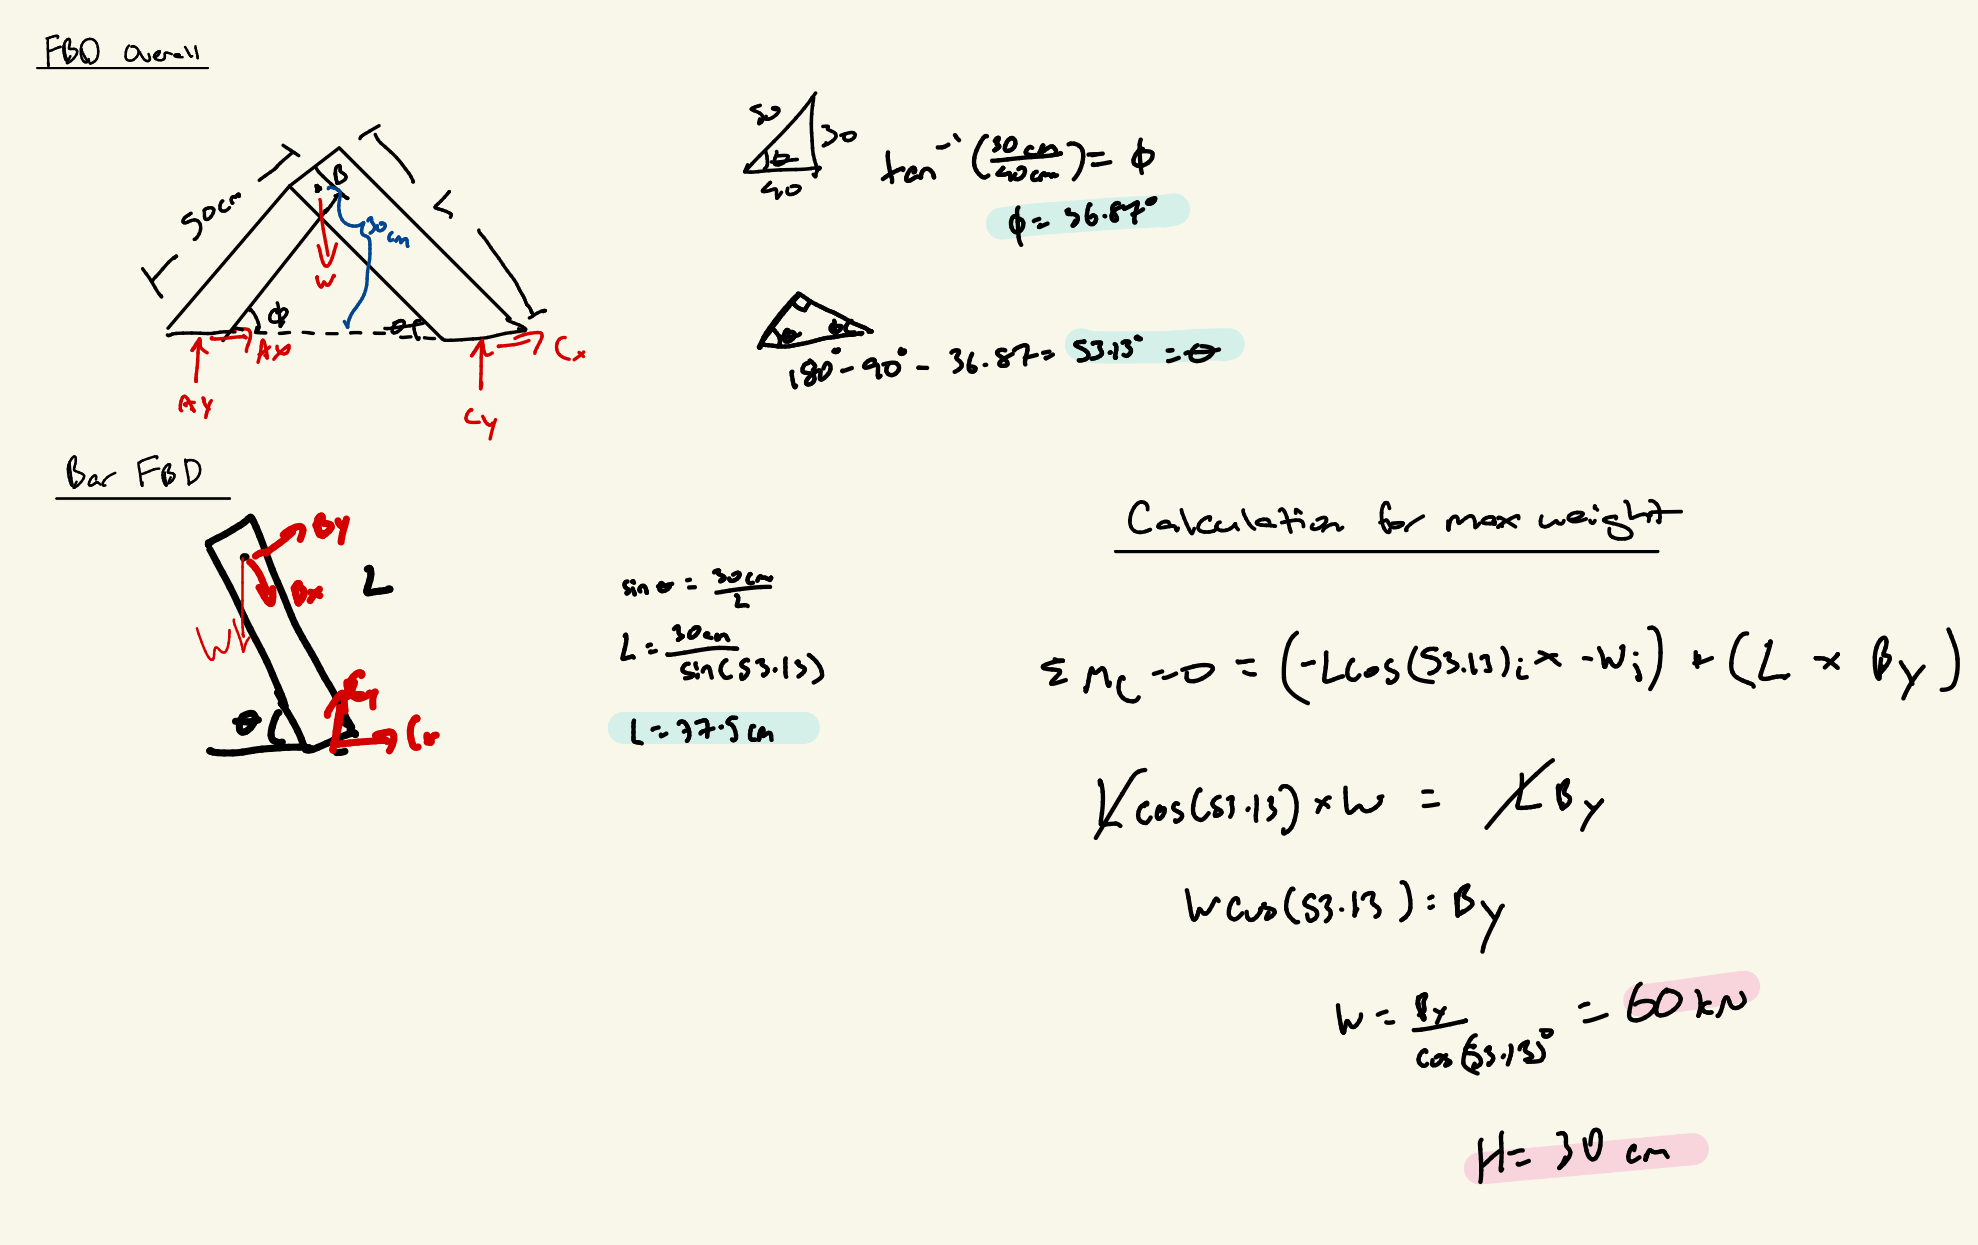 FBD Overall
50cm
B
L
30cm
W
ϕ
θ
Ax
Cx
Ay
Cy
50
30
θ
40
tan⁻¹(30cm/40cm) = ϕ
ϕ = 36.87°
θ
180° - 90° - 36.87 = 53.13° = θ
Bar FBD
By
L
Bx
W
Cy
θ
Cx
sin θ = 30cm/L
L = 30cm/sin(53.13)
L = 37.5cm
Calculation for max weight
ΣMc = 0 = (-Lcos(53.13)i × -Wj) + (L × By)
Lcos(53.13) × W = LBy
Wcos(53.13) = By
W = By/cos(53.13)° = 60 kN
H = 30 cm